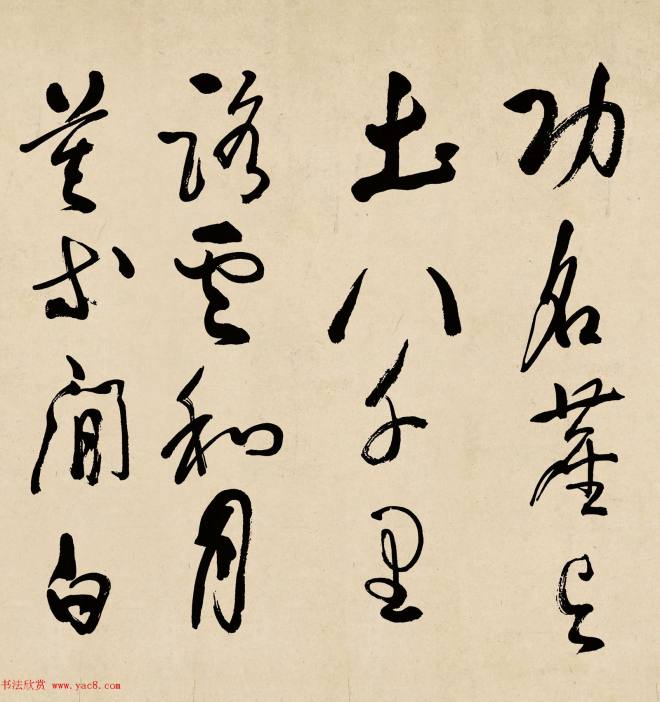 功名塵与
土八千里
路雲和月
莫等閒白
书法欣赏 www.yac8.com